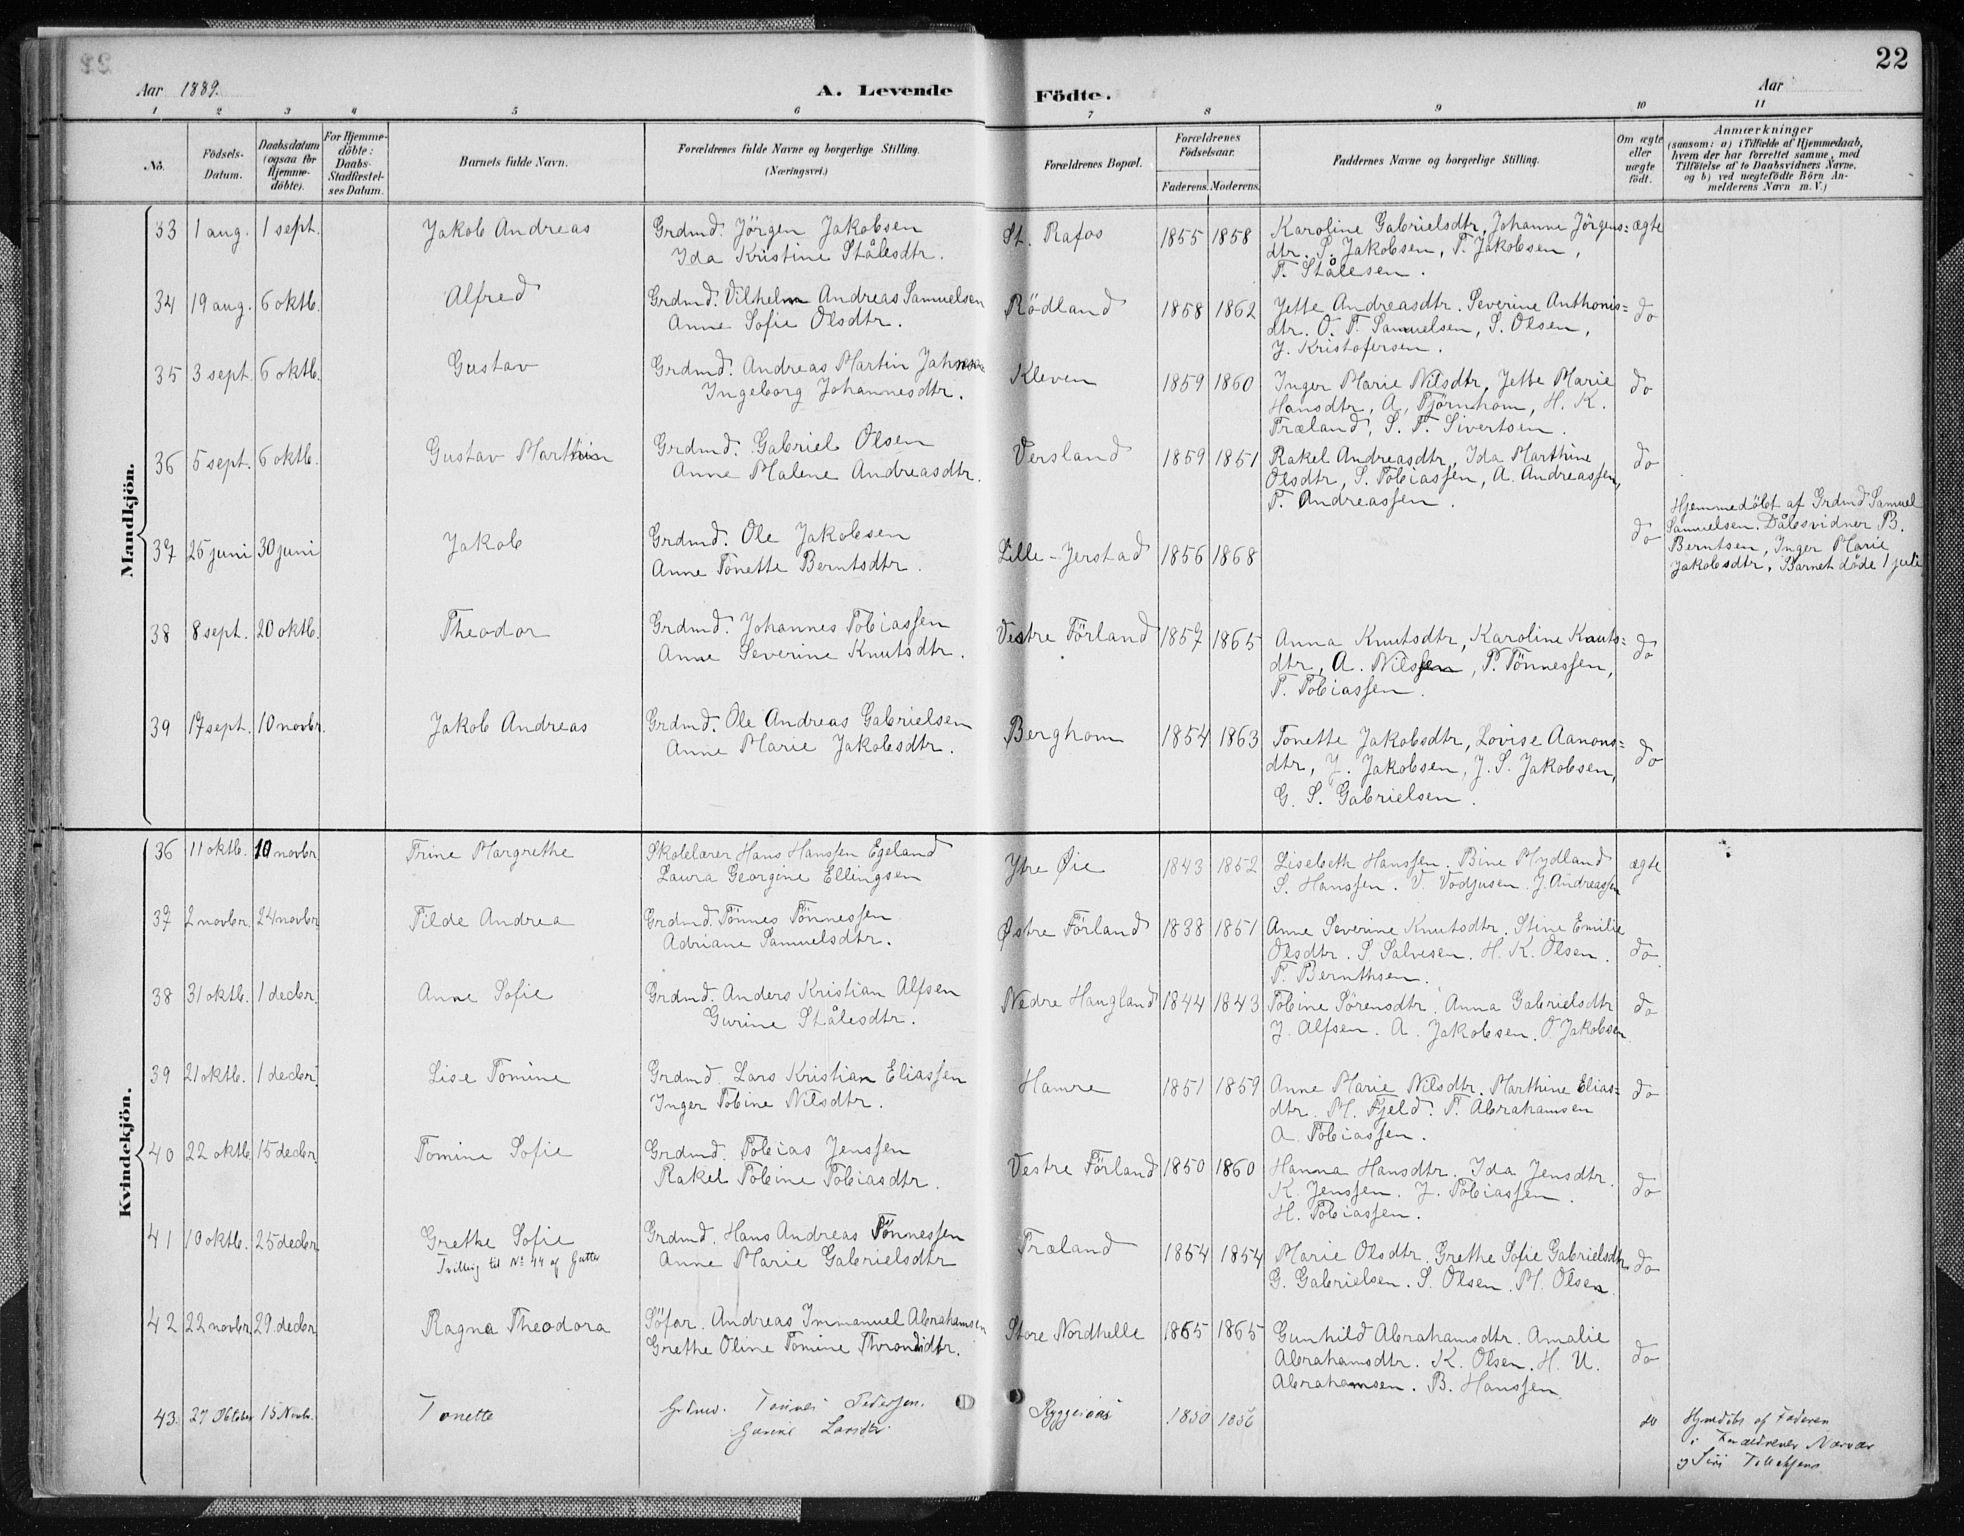 22
Aar 1889.
A. Levende Födte.
Aar
1 2 3 4 5 6 7 8 9 10 11
No.
Födsels-Datum.
Daabsdatum (ogsaa for Hjemme-döbte).
For Hjemme-döbte: Daabs-Stadfæstel-ses Datum.
Barnets fulde Navn.
Forældrenes fulde Navne og borgerlige Stilling. (Næringsvei.)
Forældrenes Bopæl.
Forældrenes Födselsaar.
Faderens. Moderens.
Faddernes Navne og borgerlige Stilling.
Om ægte eller uægte födt.
Anmærkninger
(saasom: a) i Tilfælde af Hjemmedaab,
hvem der har forrettet samme, med
Tilföielse af to Daabsvidners Navne,
og b) ved uægtefödte Börn An-
melderens Navn m. V.)
Mandkjön.
33 1 aug. 1 sept. Jakob Andreas Grdmd. Jörgen Jakobsen St. Rafos 1855 1858 Karoline Gabrielsdtr, Johanne Jörgens= ægte
Ida Kristine Stålesdtr. dtr. P. Jakobsen, T. Jakobsen,
T. Stålesen.
34 19 aug. 6 oktb. Alfred Grdmd. Vilhelm Andreas Samuelsen Rödland 1858 1862 Jette Andreasdtr. Severine Anthonis= do
Anne Sofie Olsdtr. dtr. O. T. Samuelsen, S. Olsen,
J. Kristofersen.
35 3 sept. 6 oktb. Gustav Grdmd. Andreas Martin Kleven 1859 1860 Inger Marie Nilsdtr, Jette Marie do
Ingeborg Johannesdtr. Hansdtr, A. Tjörnhom, H. K.
Træland, S. T. Sivertsen.
36 5 sept. 6 oktb. Gustav Marthin Grdmd. Gabriel Olsen Versland 1859 1851 Rakel Andreasdtr, Ida Marthine do
Anne Malene Andreasdtr. Olsdtr, S. Tobiassen, A. Andreassen,
T. Andreassen.
37 25 juni 30 juni Jakob Grdmd. Ole Jakobsen Lille-Jerstad 1856 1868 do Hjemmedöbt af Grdmd Samuel
Anne Tonette Berntsdtr. Samuelsen. Dåbsvidner B.
Berntsen, Inger Marie
Jakobsdtr, Barnet döde 1 juli
38 8 sept. 20 oktb. Theodor Grdmd. Johannes Tobiassen Vestre Förland 1857 1865 Anna Knutsdtr, Karoline Knuts= do
Anne Severine Knutsdtr. dtr, A. Nilssen, P. Tönnessen,
T. Tobiassen.
39 17 sept. 10 novbr. Jakob Andreas Grdmd. Ole Andreas Gabrielsen Berghom 1854 1863 Tonette Jakobsdtr, Lovise Aanons= do
Anne Marie Jakobsdtr. dtr, J. Jakobsen, J. S. Jakobsen,
G. S. Gabrielsen.
Kvindekjön.
36 11 oktb. 10 novbr Trine Margrethe Skolelærer Hans Hanssen Egeland Ytre Øie 1843 1852 Lisebeth Hanssen. Bine Mydland ægte
Laura Georgine Ellingsen S. Hanssen. V. Vodjusen. J. Andreassen
37 2 novbr. 24 novbr Tilde Andrea Grdmd. Tönnes Tönnessen Østre Förland 1838 1851 Anne Severine Knutsdtr. Stine Emilie do.
Adriane Samuelsdtr. Olsdtr. S. Salvesen. H. K. Olsen.
T. Bernthsen.
38 31 oktb. 1 decbr. Anne Sofie Grdmd. Anders Kristian Alfsen Nedre Haugland 1844 1843 Tobine Sörensdtr. Anna Gabrielsdtr do
Gurine Stålesdtr. J. Alfsen. A. Jakobsen. O. Jakobsen
39 21 oktb. 1 decbr. Lise Tomine Grdmd. Lars Kristian Eliassen Hamre 1851 1859 Anne Marie Nilsdtr. Marthine Elias= do
Inger Tobine Nilsdtr. dtr. M. Fjeld. T. Abrahamsen
A. Tobiassen.
40 22 oktb. 15 decbr. Tomine Sofie Grdmd. Tobias Jenssen Vestre Förland 1850 1860 Hanna Hansdtr. Ida Jensdtr. do
Rakel Tobine Tobiasdtr. K. Jenssen. J. Tobiassen.
H. Tobiassen.
41 10 oktb. 25 decbr Grethe Sofie Grdmd. Hans Andreas Tönnessen Træland 1854 1854 Marie Olsdtr. Grethe Sofie Gabrielsdtr do
Tvilling til No 44 af Gutter Anne Marie Gabrielsdtr G. Gabrielsen. S. Olsen. M. Olsen.
42 22 novbr 29 decbr Ragna Theodora Söfar. Andreas Immanuel Abrahamsen Store Nordhelle 1865 1865 Gunhild Abrahamsdtr. Amalie do
Grethe Oline Tomine Throndsdtr. Abrahamsdtr. K. Olsen. H. U.
Abrahamsen. B. Hanssen.
43. 27 Oktober 15 Novb. Tonette Grdmd. Tönnes Pedersen. 1850 1856 do Hjmdöbt af Faderen
Gurine Larsdtr. i Forældrenes Nærvær
og Siri